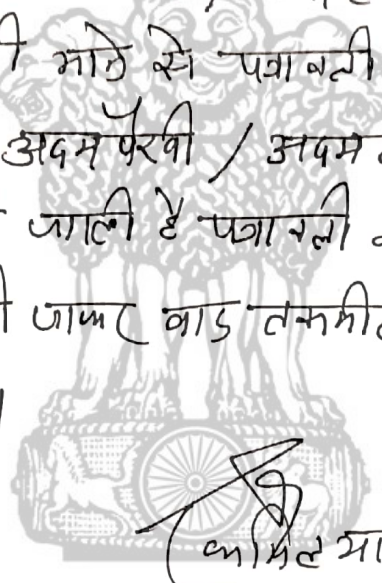 ी माने से पत्रावली
अदम पैरवी / अदम
जाती है पत्रावली
ी जाकर बाद तकमील